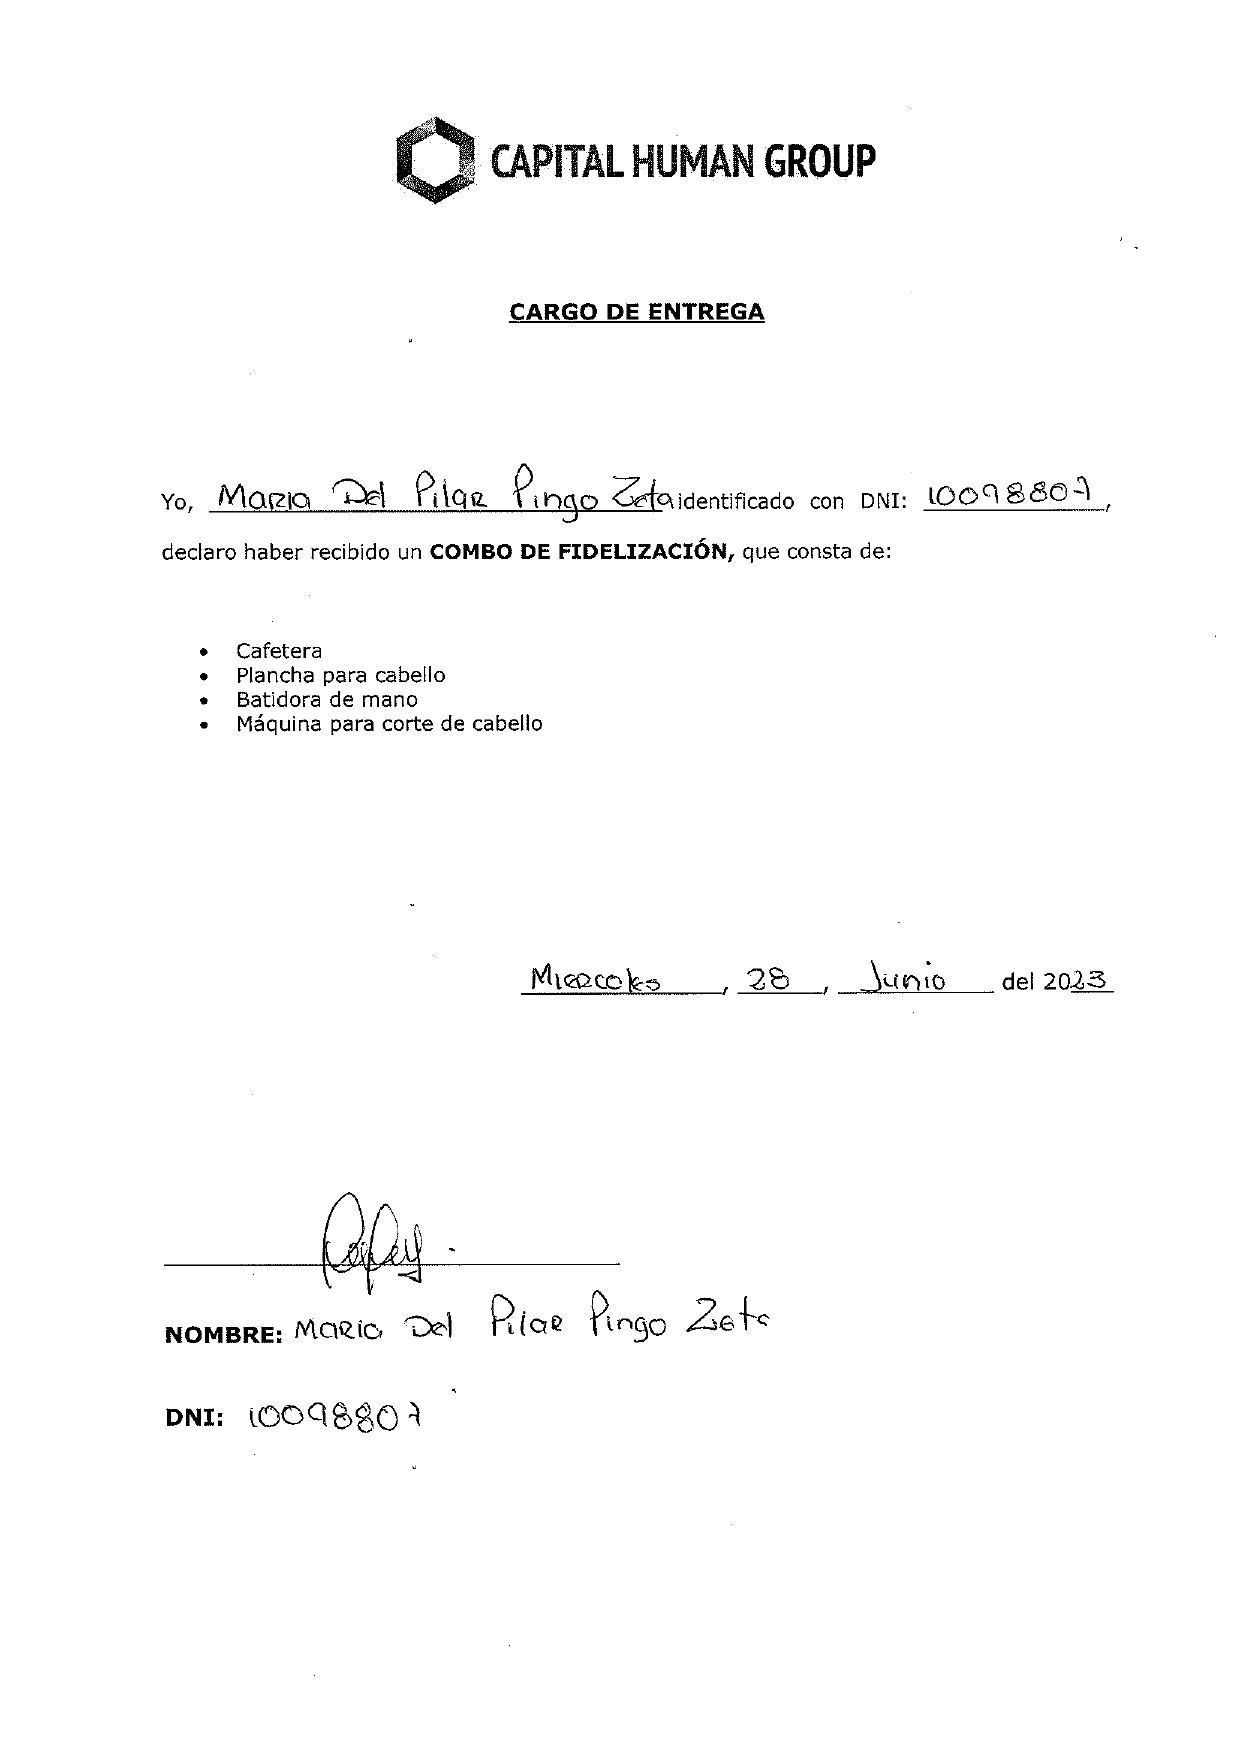 CAPITAL HUMAN GROUP
CARGO DE ENTREGA
Yo, Maria Del Pilar Pingo Zeta identificado con DNI: 10098807,
declaro haber recibido un COMBO DE FIDELIZACIÓN, que consta de:
• Cafetera
• Plancha para cabello
• Batidora de mano
• Máquina para corte de cabello
Miercoles, 28, Junio del 2023
NOMBRE: Maria Del Pilar Pingo Zeta
DNI: 10098807